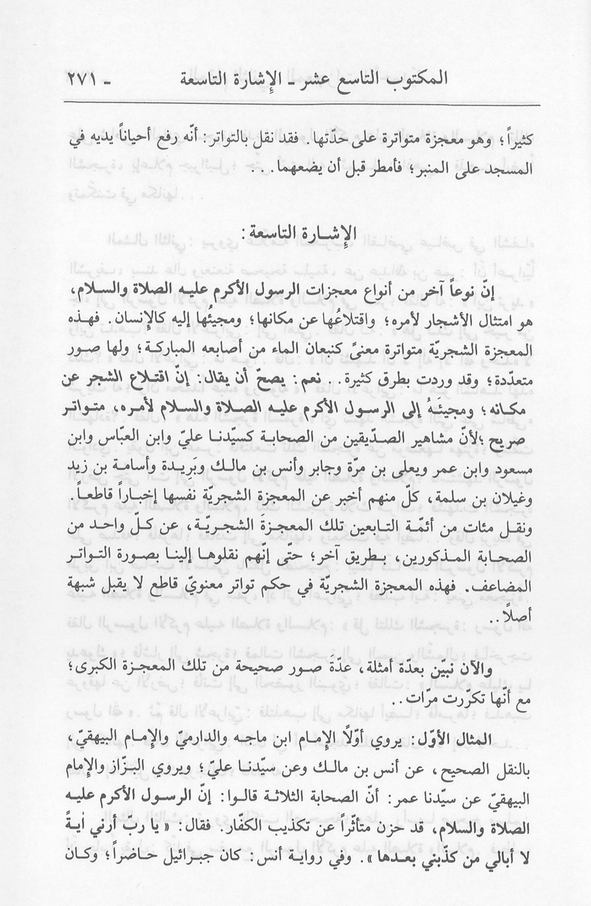 المكتوب التاسع عشر ـ الإشارة التاسعة ـ ٢٧١
كثيراً؛ وهو معجزة متواترة على حدّتها. فقد نقل بالتواتر: أنّه رفع أحياناً يديه في
المسجد على المنبر؛ فأمطر قبل أن يضعهما...
الإشارة التاسعة:
إنّ نوعاً آخر من أنواع معجزات الرسول الأكرم عليه الصلاة والسلام،
هو امتثال الأشجار لأمره؛ واقتلاعُها عن مكانها؛ ومجيئُها إليه كالإنسان. فهذه
المعجزة الشجريّة متواترة معنىً كنبعان الماء من أصابعه المباركة؛ ولها صور
متعدّدة؛ وقد وردت بطرق كثيرة.. نعم: يصحّ أن يقال: إنّ اقتلاع الشجر عن
مكانه؛ ومجيئَهُ إلى الرسول الأكرم عليه الصلاة والسلام لأمره، متواتر
صريح؛لأنّ مشاهير الصدّيقين من الصحابة كسيّدنا عليّ وابن العبّاس وابن
مسعود وابن عمر ويعلى بن مرّة وجابر وأنس بن مالك وبرِيدة وأسامة بن زيد
وغيلان بن سلمة، كلّ منهم أخبر عن المعجزة الشجريّة نفسها إخباراً قاطعاً.
ونقل مئات من أئمّة التابعين تلك المعجزة الشجريّة، عن كلّ واحد من
الصحابة المذكورين، بطريق آخر؛ حتّى إنّهم نقلوها إلينا بصورة التواتر
المضاعف. فهذه المعجزة الشجريّة في حكم تواتر معنويّ قاطع لا يقبل شبهة
أصلًا..
والآن نبيّن بعدّة أمثلة، عدّةَ صور صحيحة من تلك المعجزة الكبرى؛
مع أنّها تكرّرت مرّات..
المثال الأوّل: يروي أوّلًا الإمام ابن ماجه والدارميّ والإمام البيهقيّ،
بالنقل الصحيح، عن أنس بن مالك وعن سيّدنا عليّ؛ ويروي البزّاز والإمام
البيهقيّ عن سيّدنا عمر: أنّ الصحابة الثلاثة قالوا: إنّ الرسول الأكرم عليه
الصلاة والسلام، قد حزن متأثّراً عن تكذيب الكفّار. فقال: « يا ربّ أرني أيةً
لا أبالي من كذّبني بعدها». وفي رواية أنس: كان جبرائيل حاضراً؛ وكان